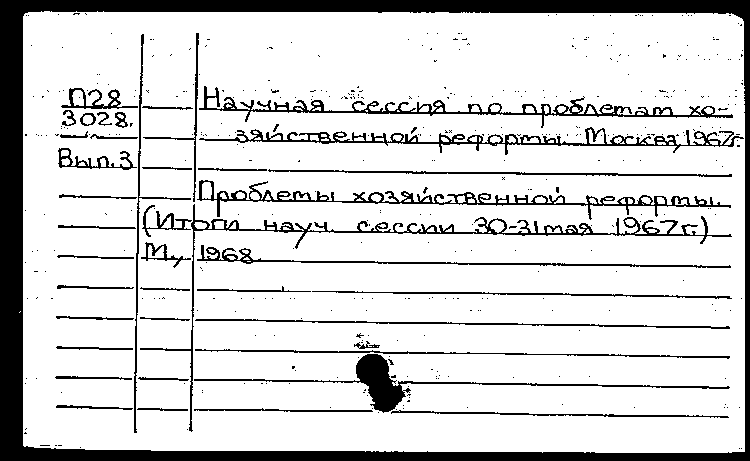 П28
3028.
Вып.3
Научная сессия по проблемам хо-
зяйственной реформы. Москва, 1967г.
Проблемы хозяйственной реформы.
(Итоги науч. сессии 30-31 мая 1967г.)
М., 1968.